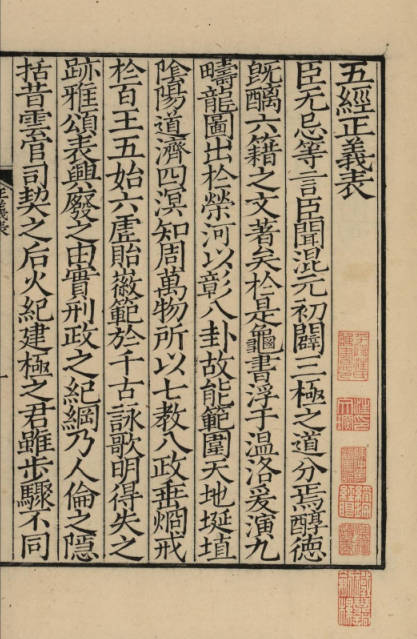 五經正義表
臣无忌等言臣聞混元初闢三極之道分焉醇德
旣醨六籍之文著矣於是龜書浮于温洛爰演九
疇龍圖出於榮河以彰八卦故能範圍天地埏埴
陰陽道濟四溟知周萬物所以七教八政垂烱戒
於百王五始六虛貽徽範於千古詠歌明得失之
跡雅頌表興廢之由實刑政之紀綱乃人倫之隱
括昔雲官司契之后火紀建極之君雖步驟不同